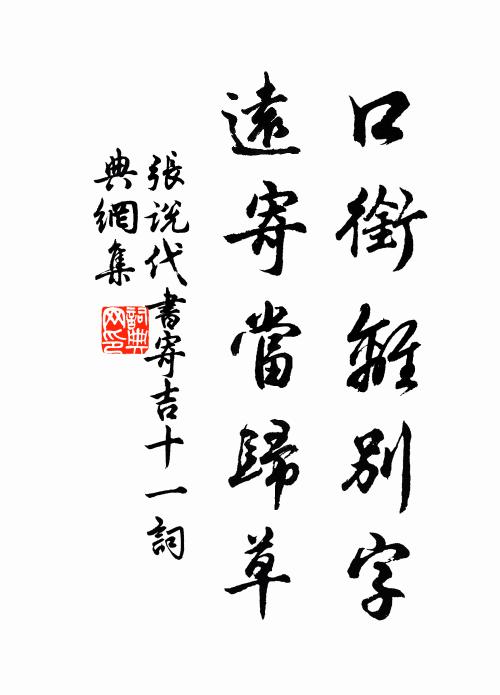 口銜離別字
遠寄當歸草
張說代書寄吉十一詞
典網集
詞典
网印